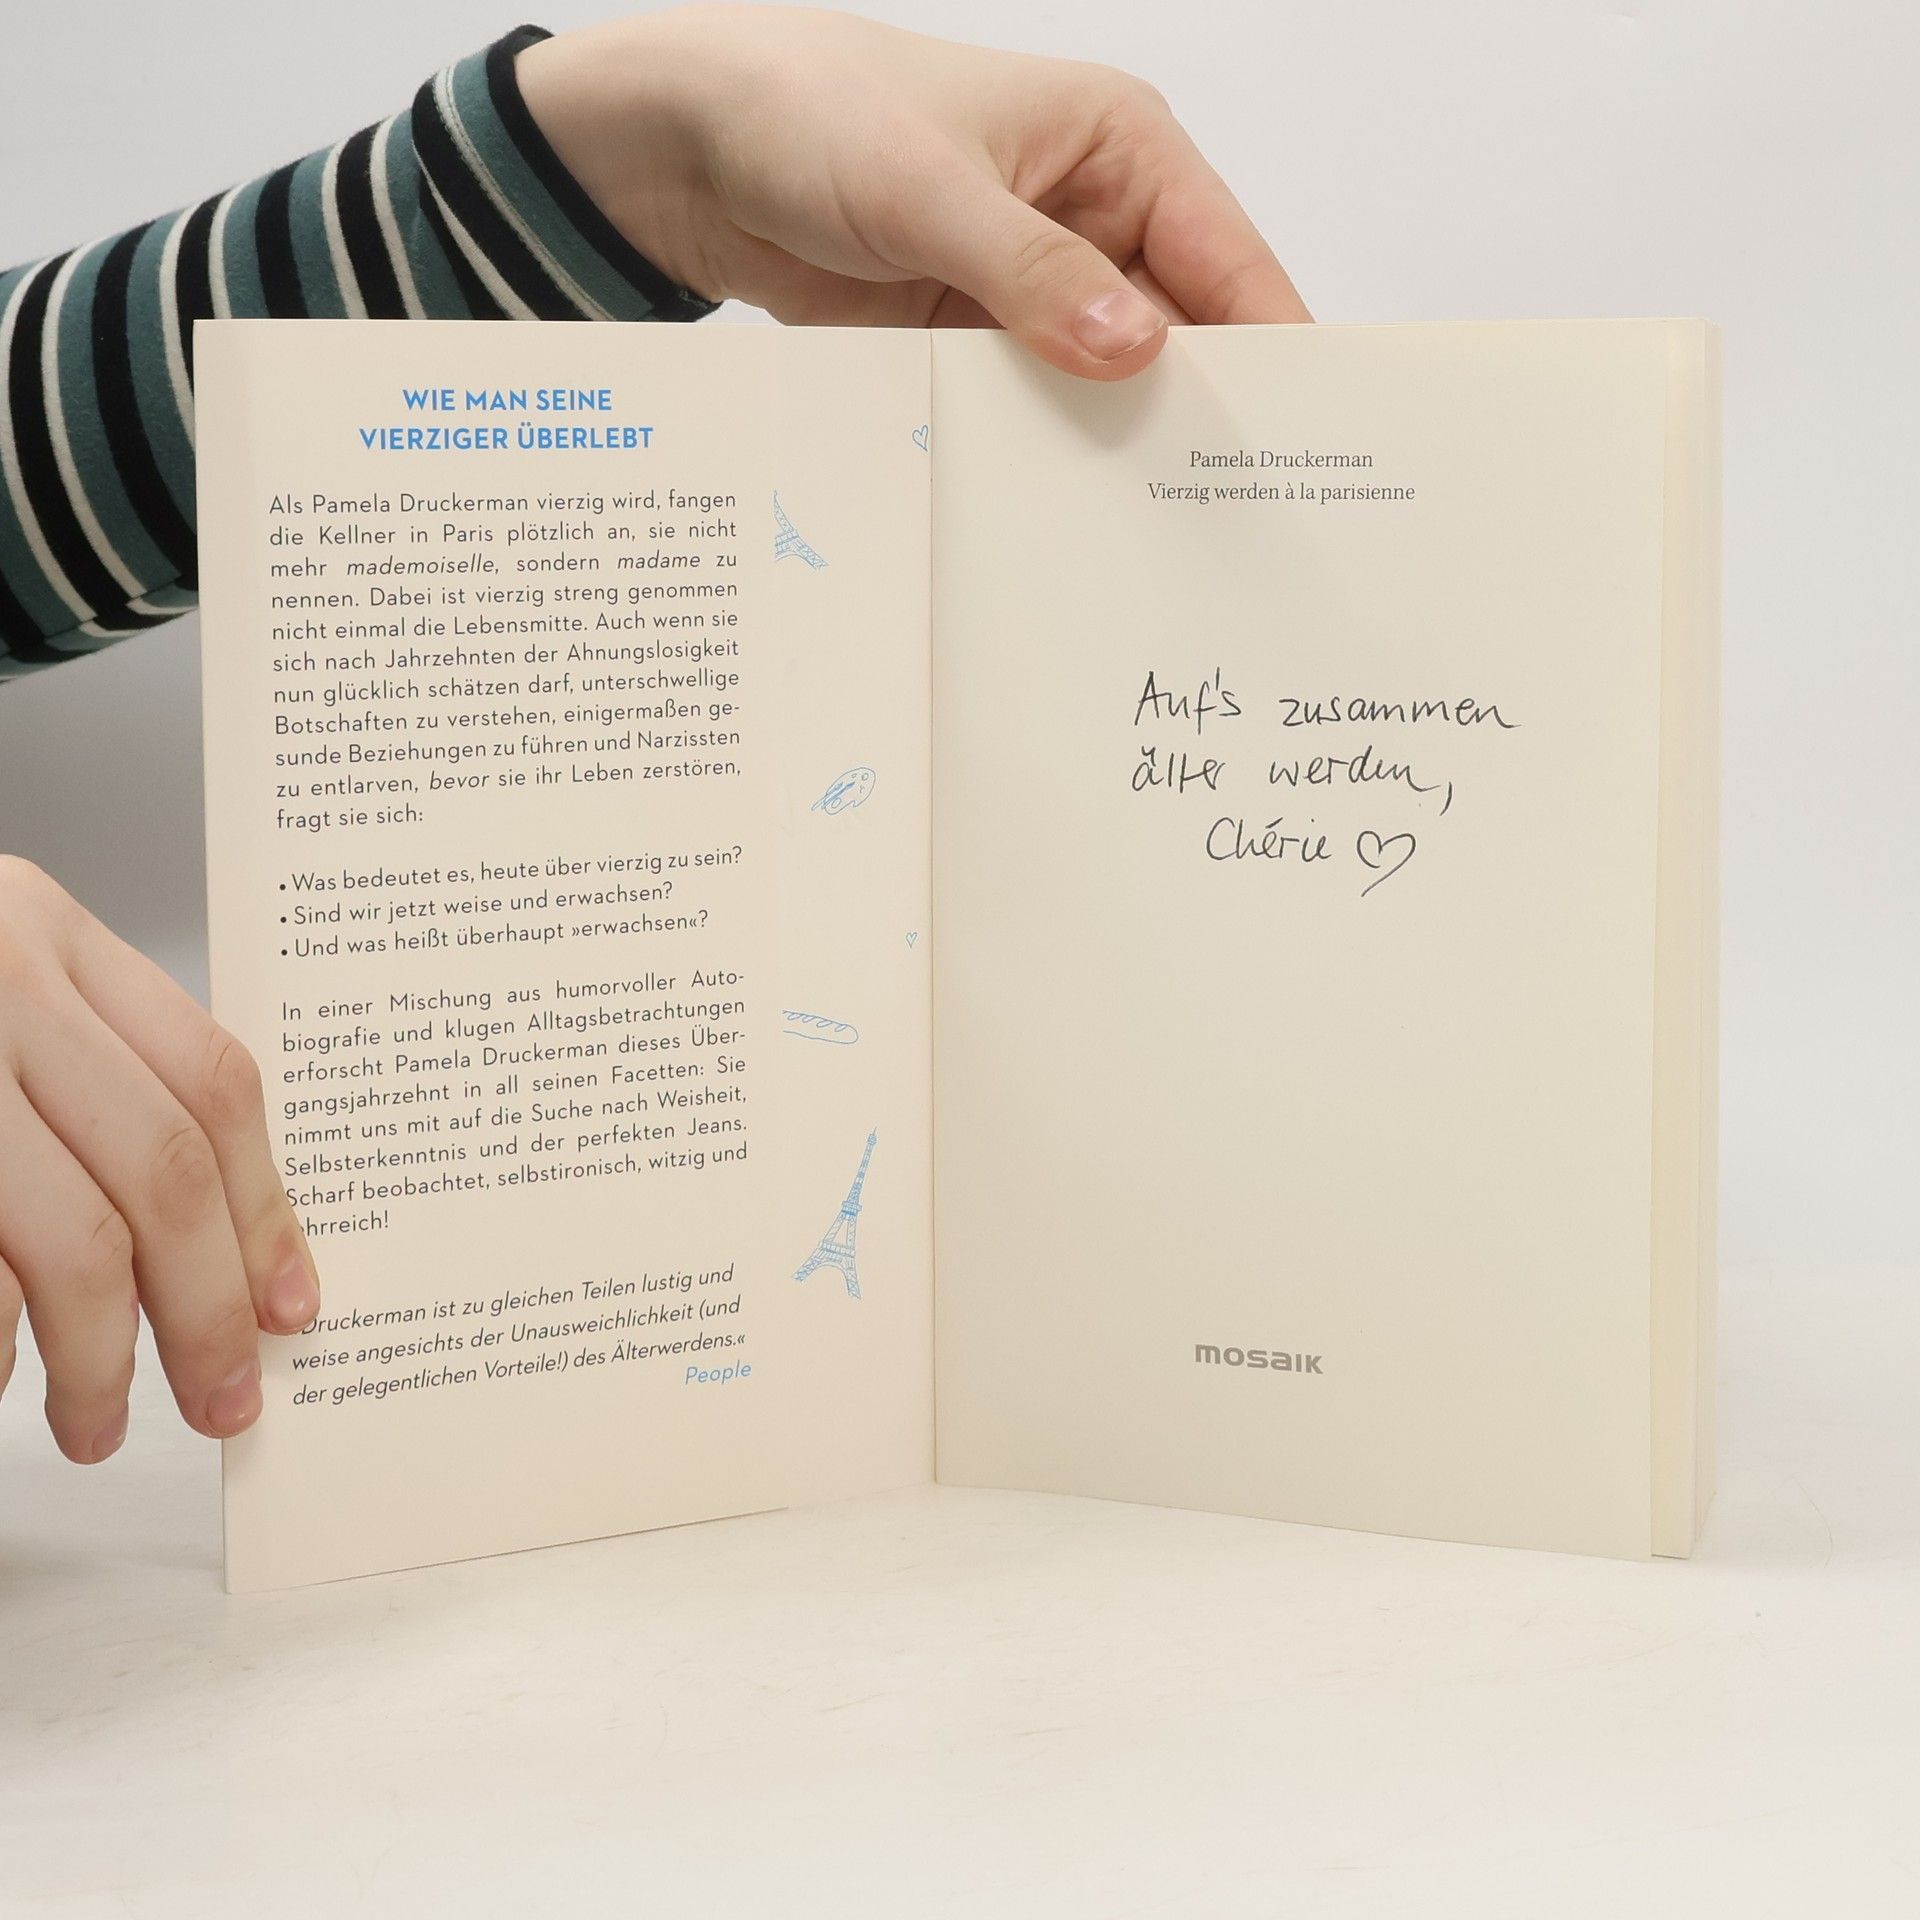 WIE MAN SEINE
VIERZIGER ÜBERLEBT
Als Pamela Druckerman vierzig wird, fangen
die Kellner in Paris plötzlich an, sie nicht
mehr mademoiselle, sondern madame zu
nennen. Dabei ist vierzig streng genommen
nicht einmal die Lebensmitte. Auch wenn sie
sich nach Jahrzehnten der Ahnungslosigkeit
nun glücklich schätzen darf, unterschwellige
Botschaften zu verstehen, einigermaßen ge-
sunde Beziehungen zu führen und Narzissten
zu entlarven, bevor sie ihr Leben zerstören,
fragt sie sich:
• Was bedeutet es, heute über vierzig zu sein?
• Sind wir jetzt weise und erwachsen?
• Und was heißt überhaupt »erwachsen«?
In einer Mischung aus humorvoller Auto-
biografie und klugen Alltagsbetrachtungen
erforscht Pamela Druckerman dieses Über-
gangsjahrzehnt in all seinen Facetten: Sie
nimmt uns mit auf die Suche nach Weisheit,
Selbsterkenntnis und der perfekten Jeans.
Scharf beobachtet, selbstironisch, witzig und
hrreich!
Druckerman ist zu gleichen Teilen lustig und
weise angesichts der Unausweichlichkeit (und
der gelegentlichen Vorteile!) des Älterwerdens.«
People
Pamela Druckerman
Vierzig werden à la parisienne
Auf's zusammen
älter werden,
Chérie ♡
mosaik